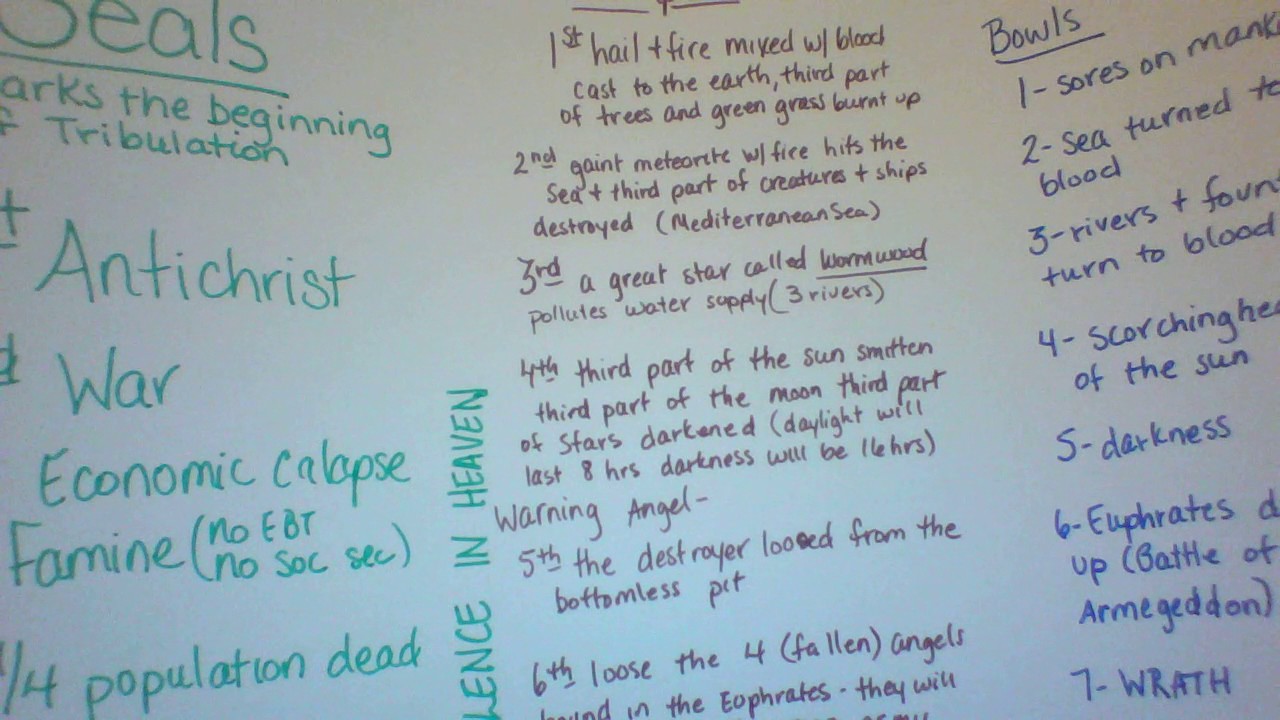 Seals
arks the beginning
f Tribulation
Antichrist
War
Economic Calapse
Famine (no EBT
no soc sec)
1/4 population dead
LENCE IN HEAVEN
1st hail + fire mixed w/ blood
cast to the earth, third part
of trees and green grass burnt up
2nd gaint meteorite w/ fire hits the
Sea + third part of creatures + ships
destroyed (Mediterranean Sea)
3rd a great star called Wormwood
pollutes water supply (3 rivers)
4th third part of the sun smitten
third part of the moon third part
of stars darkened (daylight will
last 8 hrs darkness will be 16 hrs)
Warning Angel-
5th the destroyer loosed from the
bottomless pit
6th loose the 4 (fallen) angels
bound in the Eophrates - they will
Bowls
1- sores on mank
2- Sea turned to
blood
3- rivers + foun
turn to blood
4- scorching hea
of the sun
5- darkness
6- Euphrates d
up (Battle of
Armegeddon)
7- WRATH